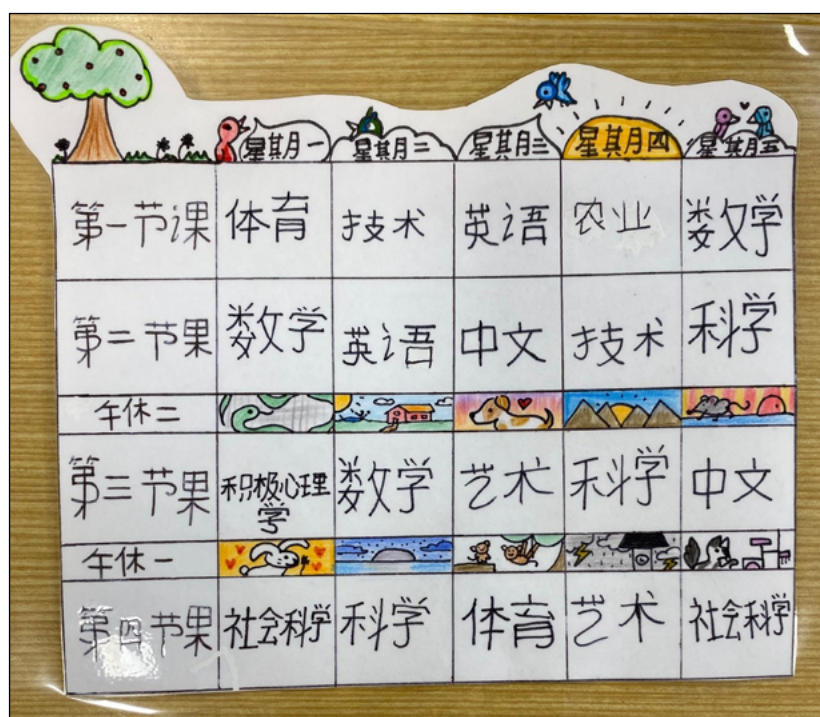 星期一 星期二 星期三 星期四 星期五
第一节课 体育 技术 英语 农业 数学
第二节果 数学 英语 中文 技术 科学
午休二
第三节果 积极心理学 数学 艺术 科学 中文
午休一
第四节果 社会科学 科学 体育 艺术 社会科学